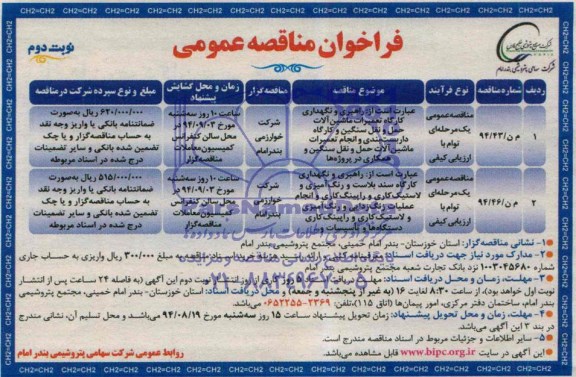 فراخوان مناقصه عمومی
نوبت دوم
شرکت سهامی پتروشیمی بندر امام
ردیف
شماره مناقصه
نوع فرآیند
موضوع مناقصه
مناقصه‌گزار
زمان و محل گشایش پیشنهاد
مبلغ و نوع سپرده شرکت در مناقصه
۱
م ن/۹۴/۴۳
مناقصه عمومی
یک‌مرحله‌ای
توام با
ارزیابی کیفی
عبارت است از: راهبری و نگهداری
کارگاه تعمیرات ماشین آلات
حمل و نقل سنگین و کارگاه
داربست‌بندی و انجام تعمیرات
ماشین آلات حمل و نقل سنگین و
همکاری در پروژه‌ها
شرکت
خوارزمی
بندر امام
ساعت ۱۰ روز سه‌شنبه
مورخ ۹۴/۰۹/۰۳ در
محل سالن کنفرانس
کمیسیون معاملات
مناقصه‌گزار
۶۲۰/۰۰۰/۰۰۰ ریال به‌صورت
ضمانتنامه بانکی یا واریز وجه نقد
به حساب مناقصه‌گزار و یا چک
تضمین شده بانکی و سایر تضمینات
درج شده در اسناد مربوطه
۲
م ن/۹۴/۴۶
مناقصه عمومی
یک‌مرحله‌ای
توام با
ارزیابی کیفی
عبارت است از: راهبری و نگهداری
کارگاه سند بلاست و رنگ آمیزی و
لاستیک‌کاری و راپینگ‌کاری و انجام
عملیات سندبلاست و رنگ آمیزی
و لاستیک کاری و راپینگ کاری
دستگاه‌ها و تأسیسات و
شرکت
خوارزمی
بندر امام
ساعت ۱۰ روز سه‌شنبه
مورخ ۹۴/۰۹/۰۳ در
محل سالن کنفرانس
کمیسیون معاملات
مناقصه‌گزار
۵۱۵/۰۰۰/۰۰۰ ریال به‌صورت
ضمانتنامه بانکی یا واریز وجه نقد
به حساب مناقصه‌گزار و یا چک
تضمین شده بانکی و سایر تضمینات
درج شده در اسناد مربوطه
۱- نشانی مناقصه‌گزار: استان خوزستان - بندر امام خمینی، مجتمع پتروشیمی بندر امام
۲- مدارک مورد نیاز جهت دریافت اسناد: مبلغ ۳۰۰/۰۰۰ ریال واریزی به حساب جاری
شماره ۱۰۰۳۰۴۵۶۸۰ نزد بانک تجارت شعبه مجتمع پتروشیمی بندر امام
۳- مهلت، زمان و محل دریافت اسناد: روز از انتشار نوبت دوم این آگهی (به فاصله ۲۴ ساعت پس از انتشار
نوبت اول خواهد بود)، از ساعت ۸:۳۰ لغایت ۱۶ (به غیر از پنجشنبه و جمعه) و محل دریافت اسناد: استان خوزستان - بندر امام خمینی، مجتمع پتروشیمی
بندر امام، ساختمان دفتر مرکزی، امور پیمان‌ها (اتاق ۱۱۵)، تلفن: ۲۳۶۹-۰۶۵۲۲۵۵ می‌باشد.
۴- مهلت، زمان و محل تحویل پیشنهاد: زمان تحویل پیشنهاد ساعت ۱۵ روز سه‌شنبه مورخ ۹۴/۰۸/۱۹ می‌باشد. و محل تسلیم آن، نشانی مندرج
در بند ۳ این آگهی می‌باشد.
۵- سایر اطلاعات و جزئیات مربوط در اسناد مناقصه مندرج است.
این آگهی در سایت www.bipc.org.ir قابل مشاهده می‌باشد.
روابط عمومی شرکت سهامی پتروشیمی بندر امام